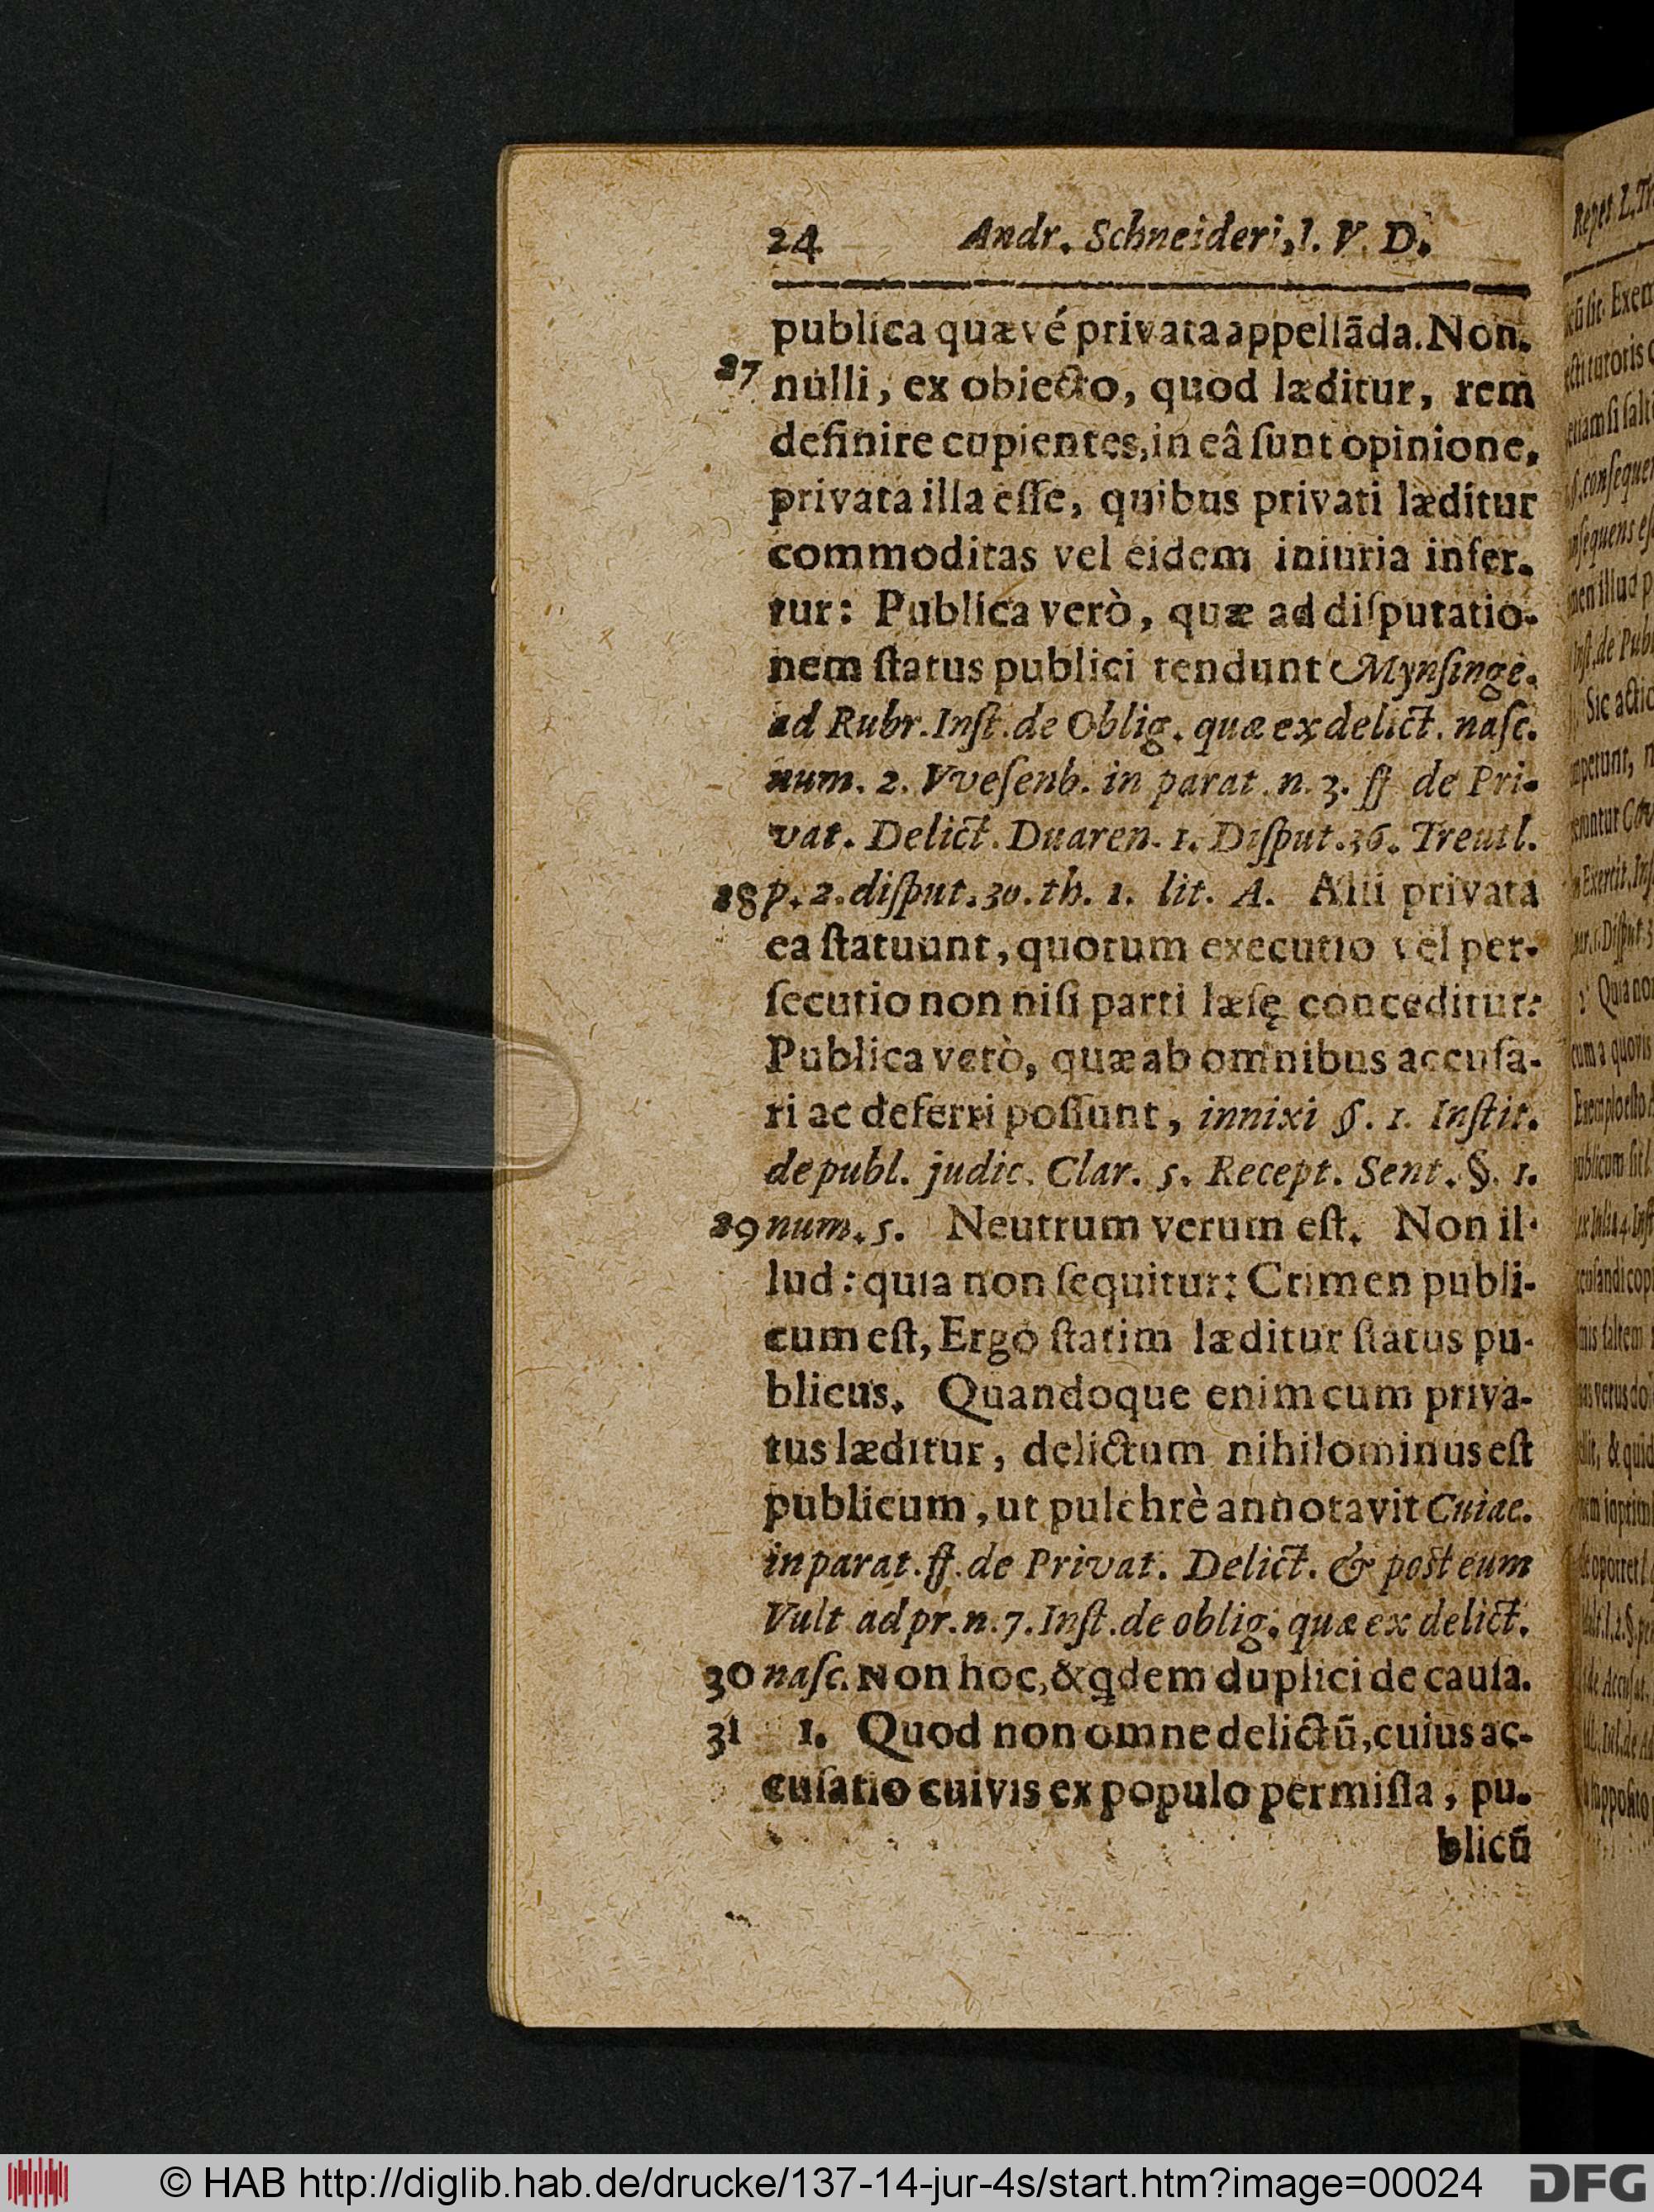 24 Andr. Schneideri, I. V. D.
publica quævé privata appellāda. Non-
27 nulli, ex obiecto, quod læditur, rem
definire cupientes, in eâ ſunt opinione,
privata illa eſſe, quibus privati læditur
commoditas vel eidem iniuria infer-
tur: Publica verò, quæ ad diſputatio-
nem ſtatus publici tendunt Mynſinge.
ad Rubr. Inſt. de Oblig. quæ ex delict. naſc.
num. 2. Vveſenb. in parat. n. 3. ff de Pri-
vat. Delict. Duaren. 1. Diſput. 36. Treutl.
28 p. 2. diſput. 30. th. 1. lit. A. Alii privata
ea ſtatuunt, quorum executio vel per-
ſecutio non niſi parti læſę conceditur:
Publica verò, quæ ab omnibus accuſa-
ri ac deferri poſſunt, innixi §. 1. Inſtit.
de publ. judic. Clar. 5. Recept. Sent. §. 1.
29 num. 5. Neutrum verum eſt. Non il-
lud: quia non ſequitur: Crimen publi-
cum eſt, Ergo ſtatim læditur ſtatus pu-
blicus. Quandoque enim cum priva-
tus læditur, delictum nihilominus eſt
publicum, ut pulchrè annotavit Cuiac.
in parat. ff. de Privat. Delict. & poſt eum
Vult ad pr. n. 7. Inſt. de oblig. quæ ex delict.
30 naſc. Non hoc, & qdem duplici de cauſa.
31 1. Quod non omne delictū, cuius ac-
cuſatio cuivis ex populo permiſſa, pu-
blicū
© HAB http://diglib.hab.de/drucke/137-14-jur-4s/start.htm?image=00024
DFG